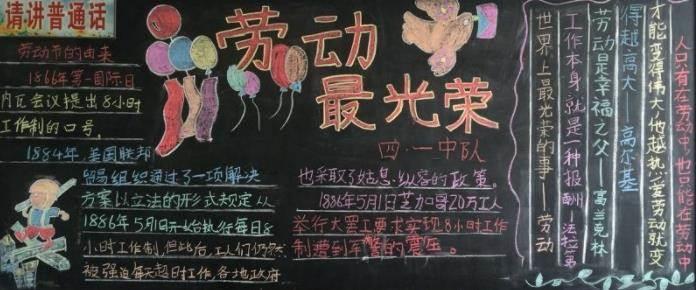 请讲普通话
劳动最光荣
四.一中队
劳动节的由来
1866年第一国际日
内瓦会议提出8小时
工作制的口号。
1884年,美国联邦
贸易组织通过了一项解决
方案以立法的形式规定从
1886年5月1日开始执行每日8
小时工作制,但此后,工人们仍然
被强迫每天超时工作,各地政府
也采取了姑息、纵容的政策。
1886年5月1日芝加哥20万工人
举行大罢工要求实现8小时工作
制遭到军警的震压。
人只有在劳动中,也只能在劳动中
才能变得伟大,他越热爱劳动就变
得越高大——高尔基
劳动是幸福之父——富兰克林
工作本身就是一种报酬——法拉第
世界上最光荣的事——劳动